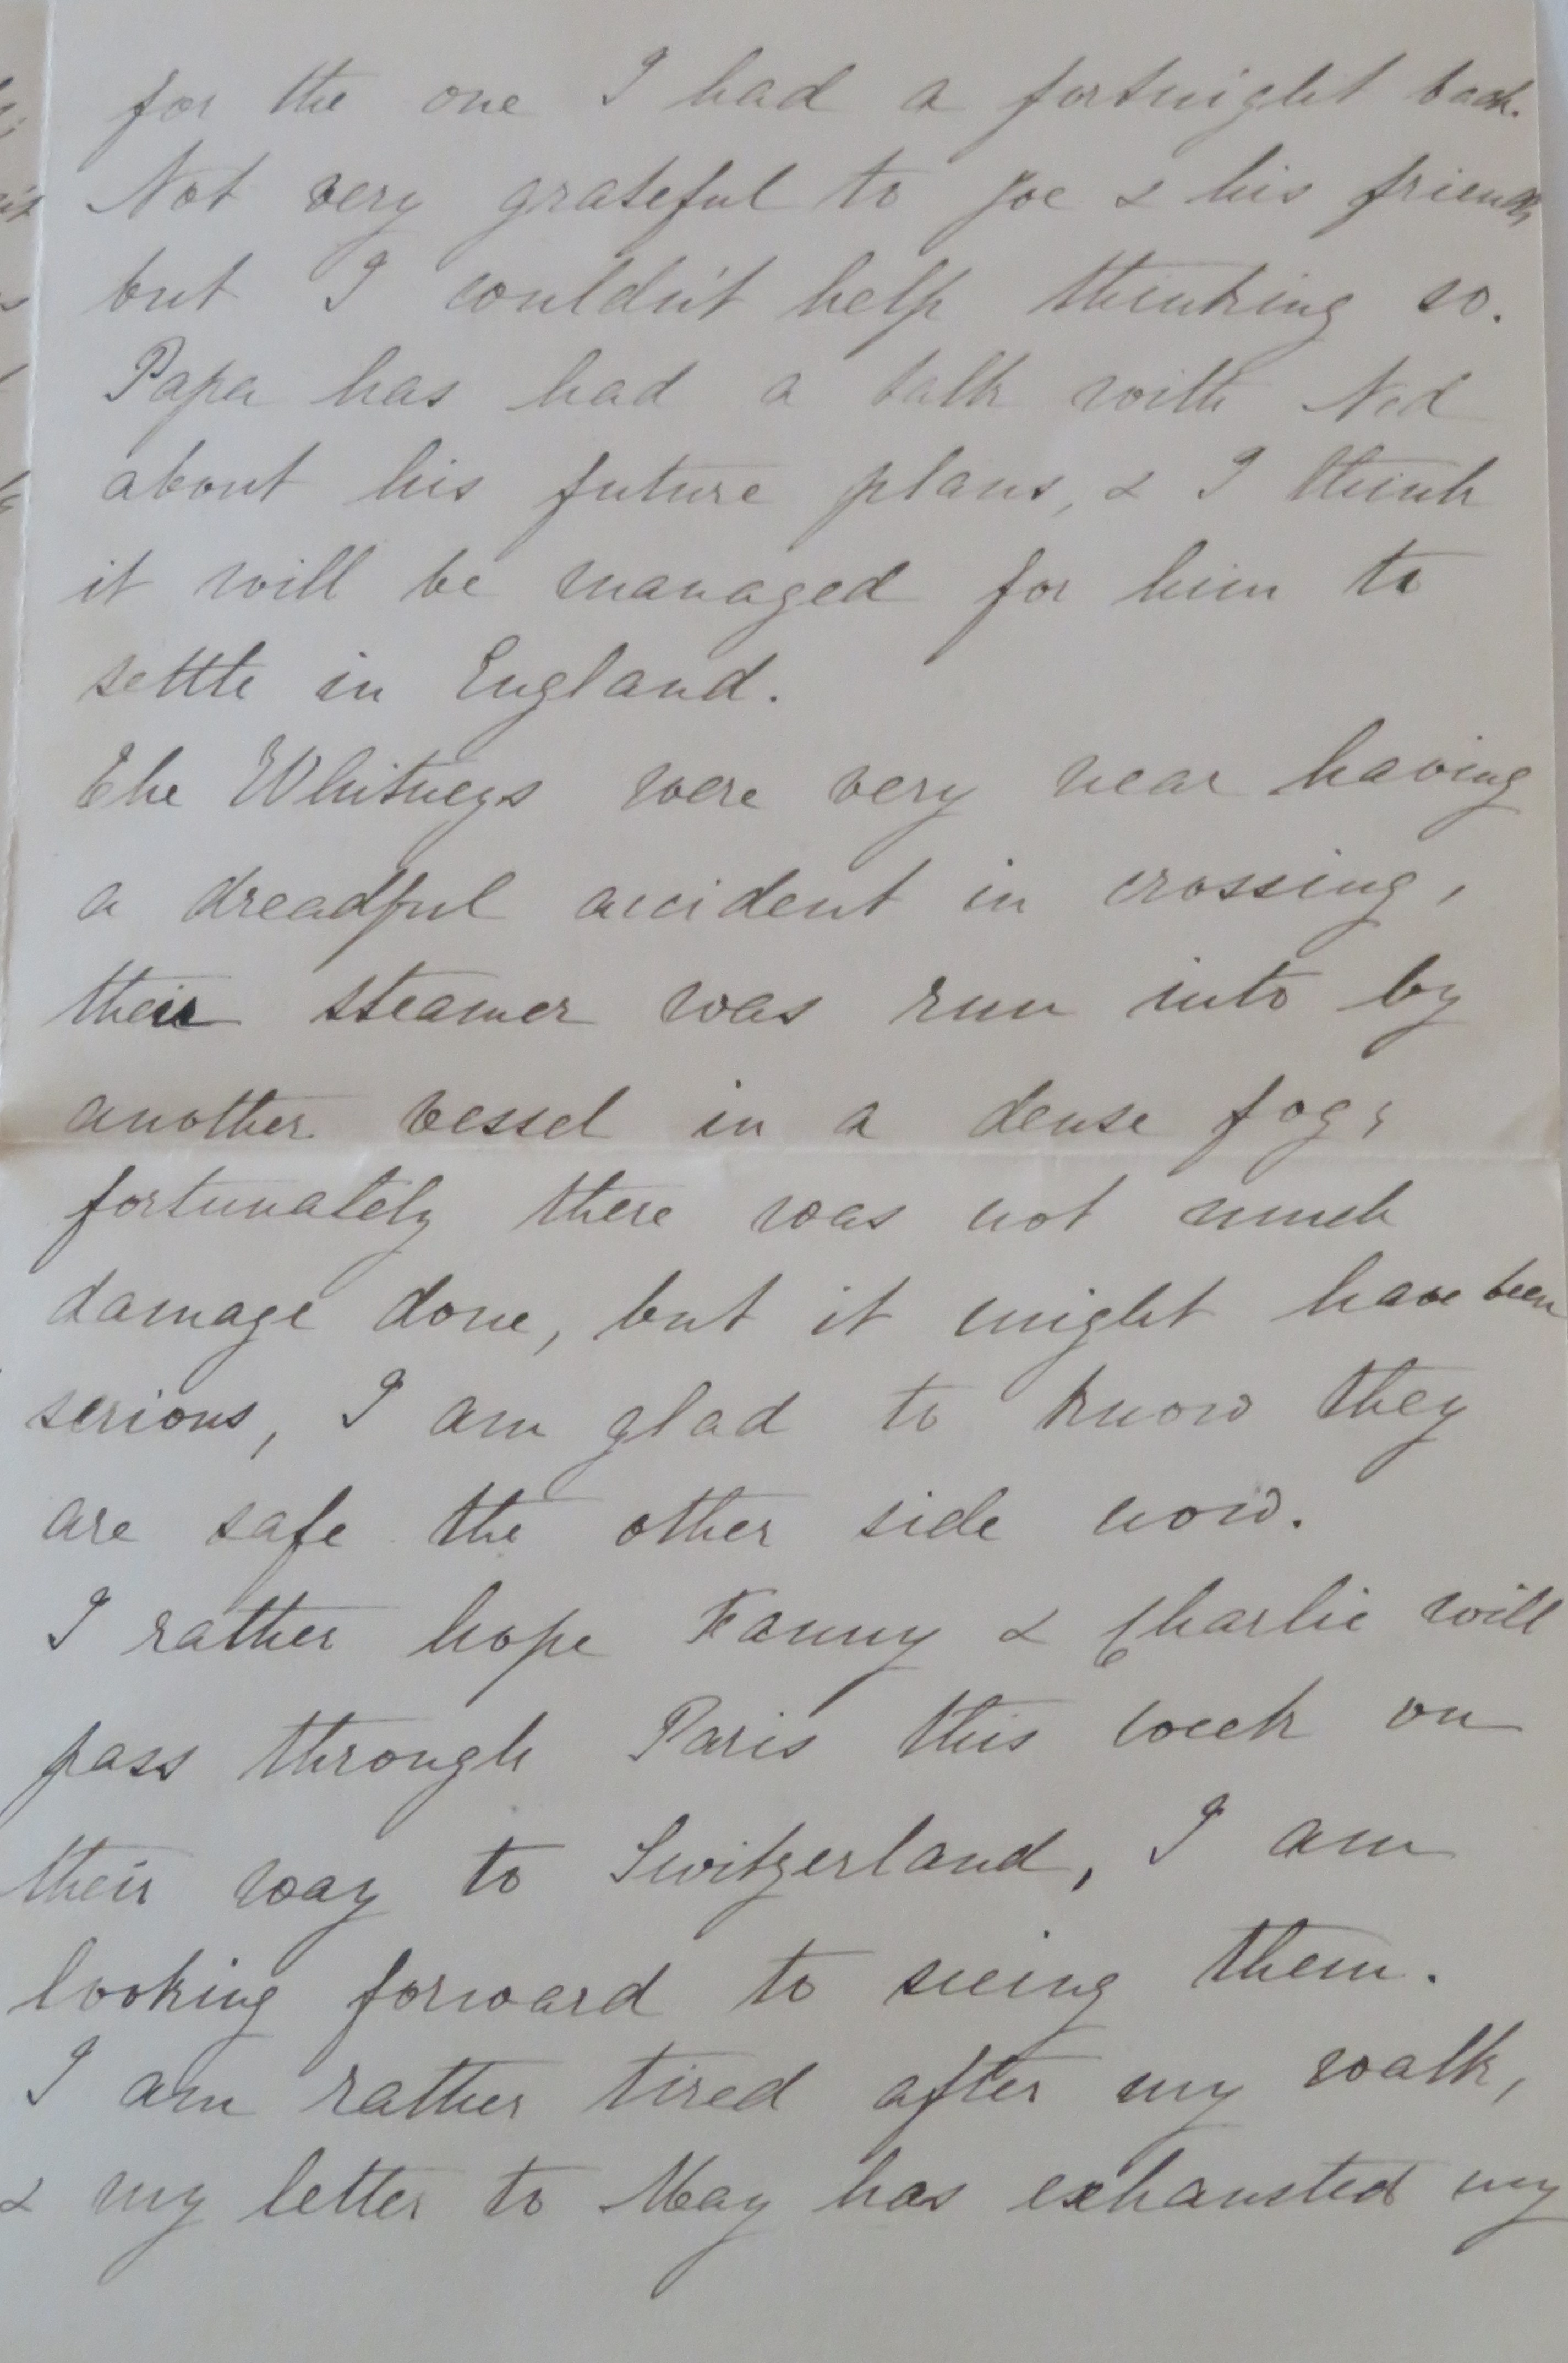 for the one I had a fortnight back.
Not very grateful to Joe & his friends,
but I couldn't help thinking so.
Papa has had a talk with Ned
about his future plans, & I think
it will be managed for him to
settle in England.
The Whitneys were very near having
a dreadful accident in crossing,
their steamer was run into by
another vessel in a dense fog;
fortunately there was not much
damage done, but it might have been
serious, I am glad to know they
are safe the other side now.
I rather hope Fanny & Charlie will
pass through Paris this week on
their way to Switzerland, I am
looking forward to seeing them.
I am rather tired after my walk,
& my letter to May has exhausted my